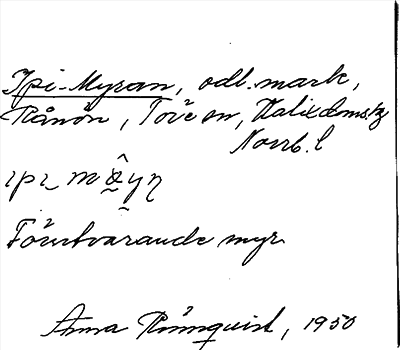 Ipi-Myran, odl. mark,
Rånön, Töre sn, Kalix doms.
Norrb. l
Förutvarande myr.
Anna Rönnquist, 1950